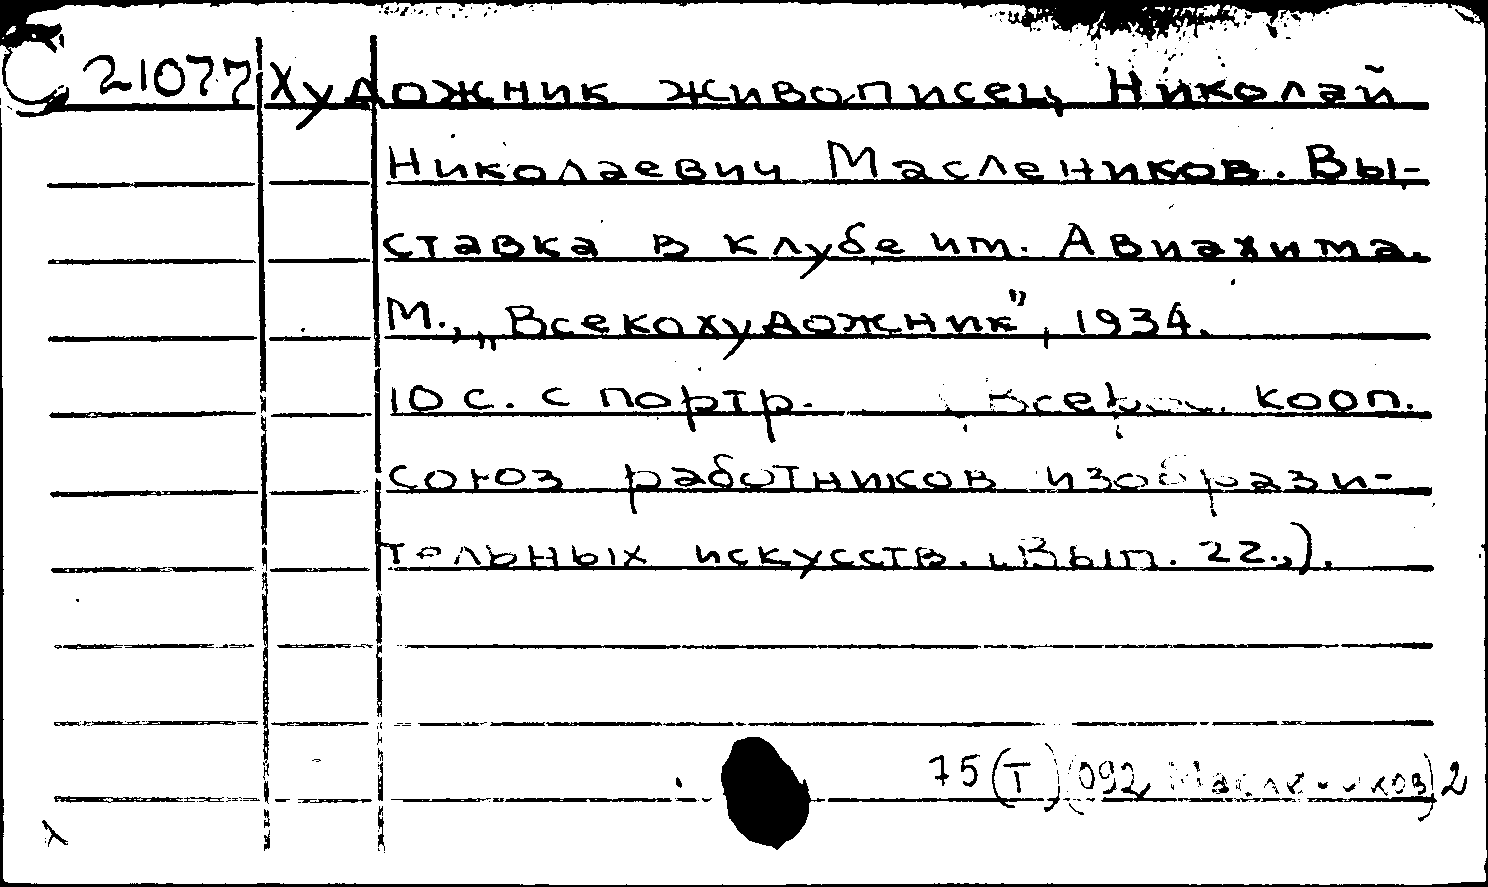 С 21077 Художник живописец Николай
Николаевич Маслеников. Вы-
ставка в клубе им. Авиахима.
М., „Всекохудожник", 1934.
10 с. с портр. (Всерос. кооп.
союз работников изобрази-
тельных искусств. Вып. 22.,).
75(Т)(092 Маслеников)2